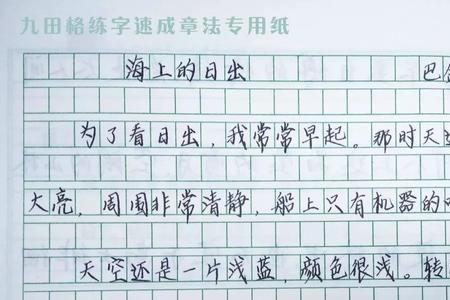 九田格练字速成章法专用纸
海上的日出 巴
为了看日出，我常常早起。那时天
大亮，周围非常清静，船上只有机器的
天空还是一片浅蓝，颜色很浅。转